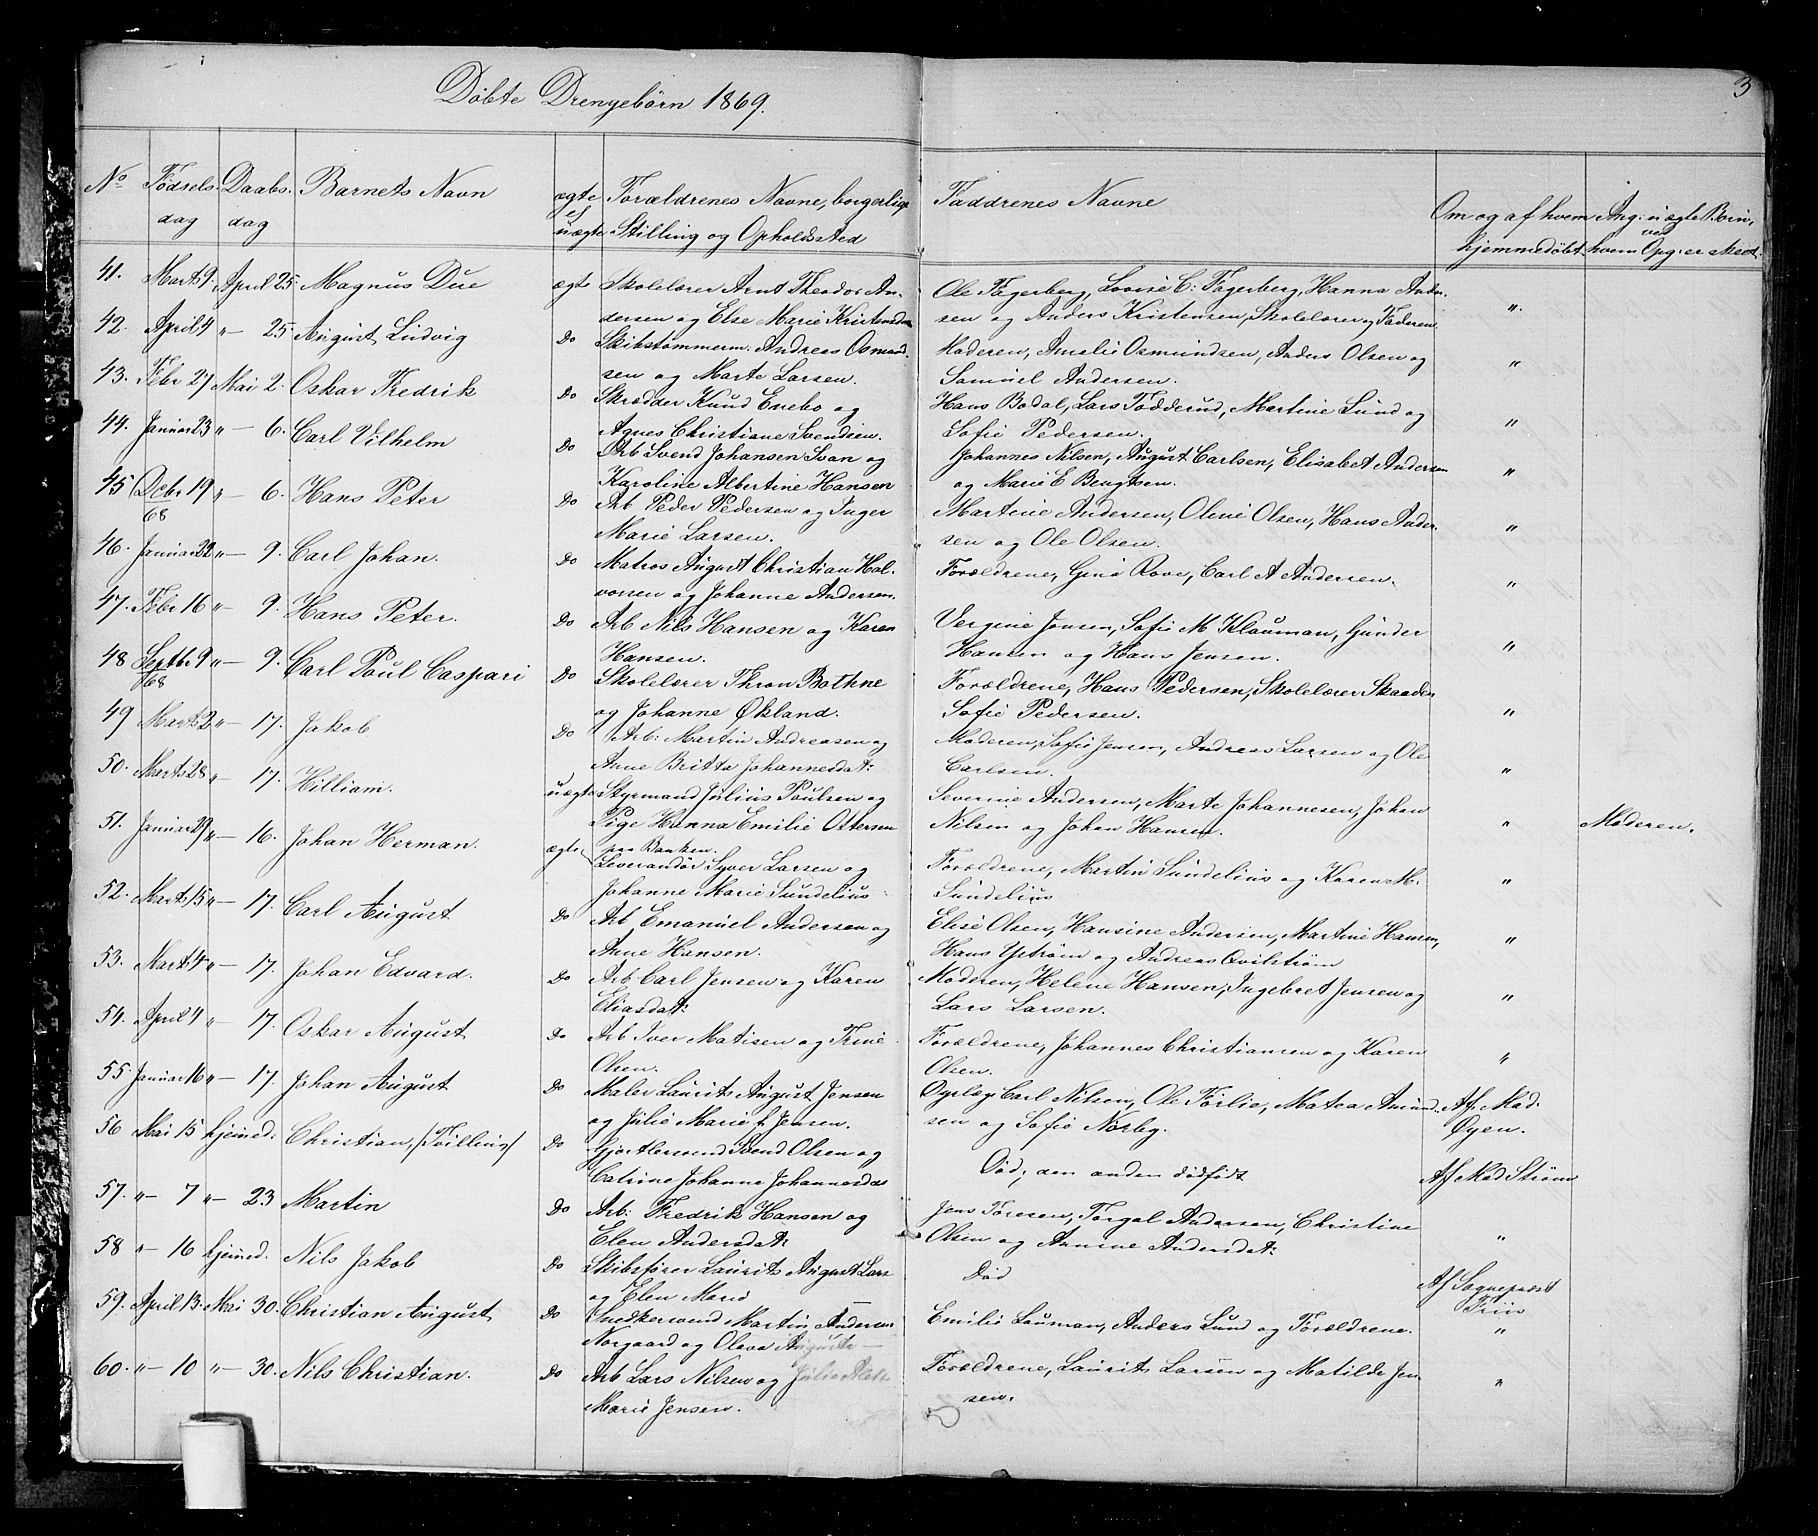 3
Døbte Drengebørn 1869.
No Fødsels- Daabs- Barnets Navn ægte Forældrenes Navne, borgerlige Faddrenes Navne Om og af hvem Ang: uægte Børn,
dag dag uægte Stilling og Opholdssted hjemmedøbt. hvem Opg: er sked.
41. Marts 9. April 25. Magnus Due ægte Skolelærer Arnt Theodor An- Ole Fagerberg, Lovise C: Fagerberg, Hanna Ander- "
dersen og Else Marie Kristensdn sen og Anders Kristensen, Skolelærer og Faderen.
42. April 4 " — 25 August Ludvig Do Skibstømmerm. Andreas Osmund- Moderen, Amalie Osmundsen, Anders Olsen og "
sen og Marte Larsen. Samuel Andersen.
43. Febr 27 Mai 2. Oskar Fredrik Do Skrædder Knud Enebo og Hans Bodal, Lars Fødderud, Martine Lund og "
Agnes Christiane Svendsen. Sofie Pedersen.
44. Januar 23 " — 6. Carl Vilhelm Do Arb Svend Johansen Svan og Johannes Nilsen, August Carlsen, Elisabet Andersen "
Karoline Albertine Hansen og Marie E Bengtsen.
45 Decbr 19 " — 6. Hans Peter Do Arb Peder Pedersen og Inger Martine Andersen, Oline Olsen, Hans Ander- "
68 Marie Larsen. sen og Ole Olsen.
46. Januar 22 " — 9. Carl Johan. Do Matros August Christian Hal- Forældrene, Gina Rove, Carl A Andersen. "
vorsen og Johanne Andersen.
47. Febr 16 " — 9. Hans Peter. Do Arb Nils Hansen og Karen Vergine Jensen, Sofie M Klauman, Gunder "
Hansen. Hansen og Hans Jensen.
48 Septbr 9 " — 9. Carl Poul Caspari Do Skolelærer Thron Bothne Forældrene, Hans Pedersen, Skolelærer Skaaden "
68 og Johanne Økland. Sofie Pedersen.
49 Marts 2 " — 17. Jakob Do Arb: Martin Andreasen og Moderen, Sofie Jensen, Andreas Larsen og Ole "
Anne Britta Johannesdat: Carlsen.
50. Marts 28 " — 17. Hilliam. uægte Styrmand Julius Poulsen og Severine Andersen, Marte Johannesen, Johan " Moderen.
Pige Hanna Emilie Ottersen Nilsen og Johan Hansen.
paa Banken.
51. Januar 29 " — 16. Johan Herman. ægte Leverandør Syver Larsen og Forældrene, Martin Sundelius og Karen M. "
Johanne Marie Sundelius Sundelius
52. Marts 15 " — 17. Carl August Do Arb Emanuel Andersen og Elise Olsen, Hansine Andersen, Martine Hansen, "
Anne Hansen. Hans Ystrøm og Andreas Qvilstrøm
53. Marts 4 " — 17. Johan Edvard. Do Arb Carl Jensen og Karen Moderen, Helene Hansen, Ingebret Jensen og "
Eliasdat: Lars Larsen.
54. April 4 " — 17. Oskar August Do Arb Iver Matisen og Trine Forældrene, Johannes Christiansen og Karen "
Olsen. Olsen.
55 Januar 16 " — 17. Johan August Do Maler Laurits August Jensen Carl Nilsen, Ole Førlie, Matea Amund- Af Mad.
og Julie Marie f. Jensen. sen og Sofie Nørby. Øyen.
56 Mai 15 hjemmed. Christian, /:Tvilling:/ Do Gjørtlersvend Svend Olsen og Død; den anden dødfødt Af Mad Strøm
Catrine Johanne Johannesdat
57. " — 7 " — 23 Martin Do Arb: Fredrik Hansen og Jens Føresen, Torgal Andersen, Christine "
Elen Andersdat: Olsen og Annine Andersdat:
58 " — 16 hjemmed. Nils Jakob Do Skibsfører Laurits August Lars Død Af Sogneprest
og Elen Marie Friis
59. April 13. Mai 30. Christian August Do Snedkersvend Martin Andersen Emilie Lauman, Anders Lund og Forældrene. "
Norgaard og Olava Augusta —
60. " — 10 " — 30. Nils Christian. Do Arb Lars Nilsen og Julie Forældrene, Laurits Larsen og Matilde Jen- "
Marie Jensen. sen.